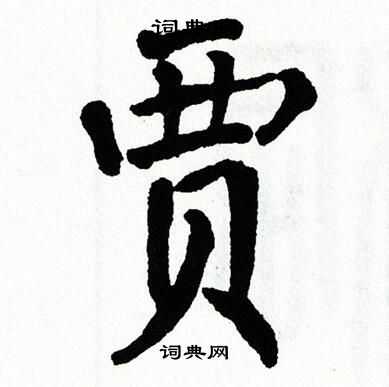 词典
贾
词典网